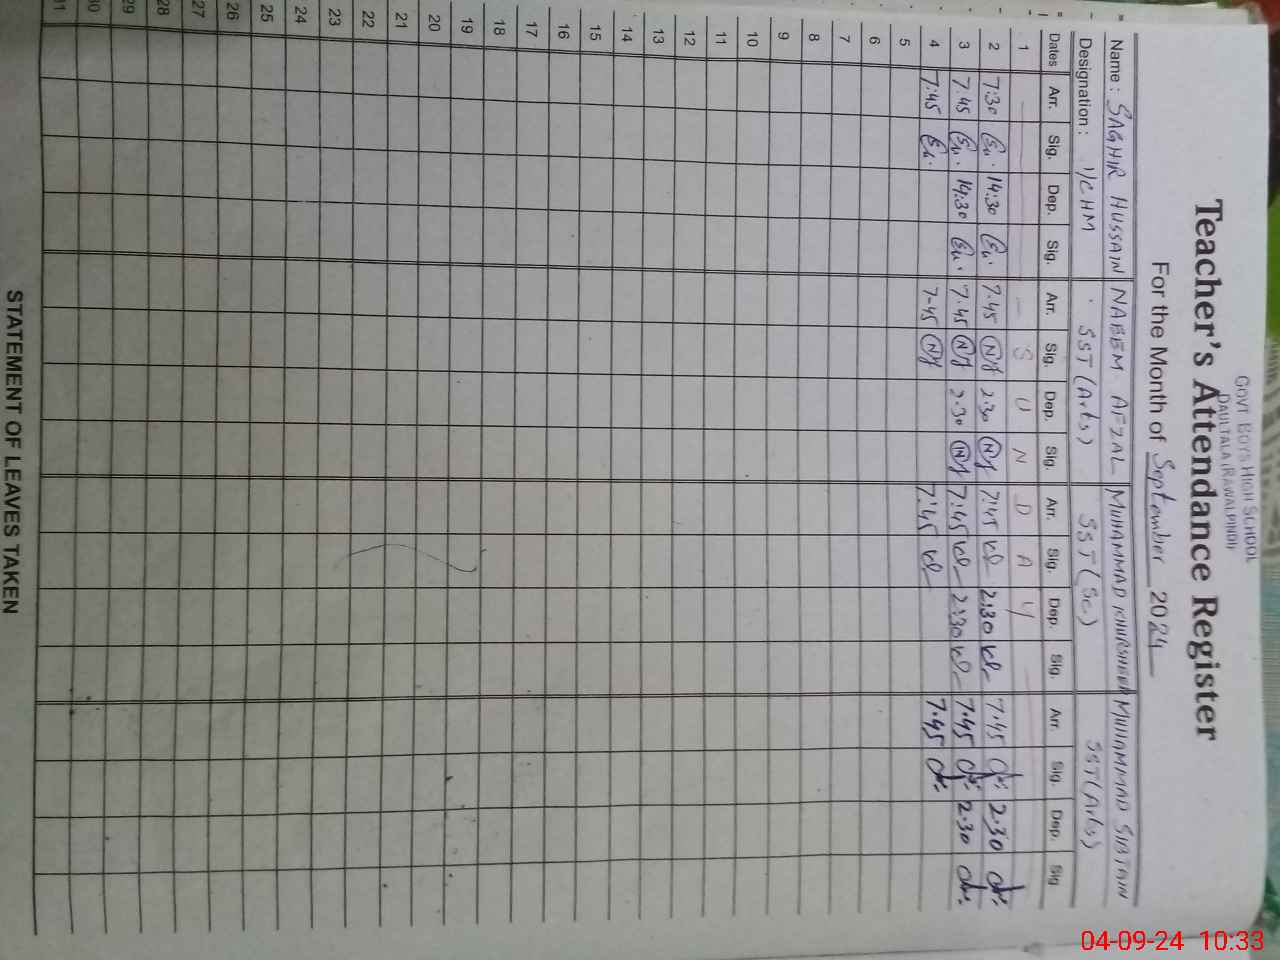 GOVT BOYS HIGH SCHOOL
DAULTALA (RAWALPINDI)
Teacher's Attendance Register
For the Month of September 2024
Name: SAGHIR HUSSAIN NAEEM AFZAL MUHAMMAD KHURSHEED MUHAMMAD SIBTAIN
Designation: I/C HM SST (Arts) SST (Sc) SST (Arts)
Dates Arr. Sig. Dep. Sig. Arr. Sig. Dep. Sig. Arr. Sig. Dep. Sig. Arr. Sig. Dep. Sig
1 S U N D A Y
2 7:30 14:30 7.45 2.30 7:45 2:30 7.45 2.30
3 7.45 14:30 7.45 2.30 7:45 2:30 7.45 2.30
4 7:45 7-45 7:45 7.45
5
6
7
8
9
10
11
12
13
14
15
16
17
18
19
20
21
22
23
24
25
26
27
28
29
30
31
STATEMENT OF LEAVES TAKEN
04-09-24 10:33